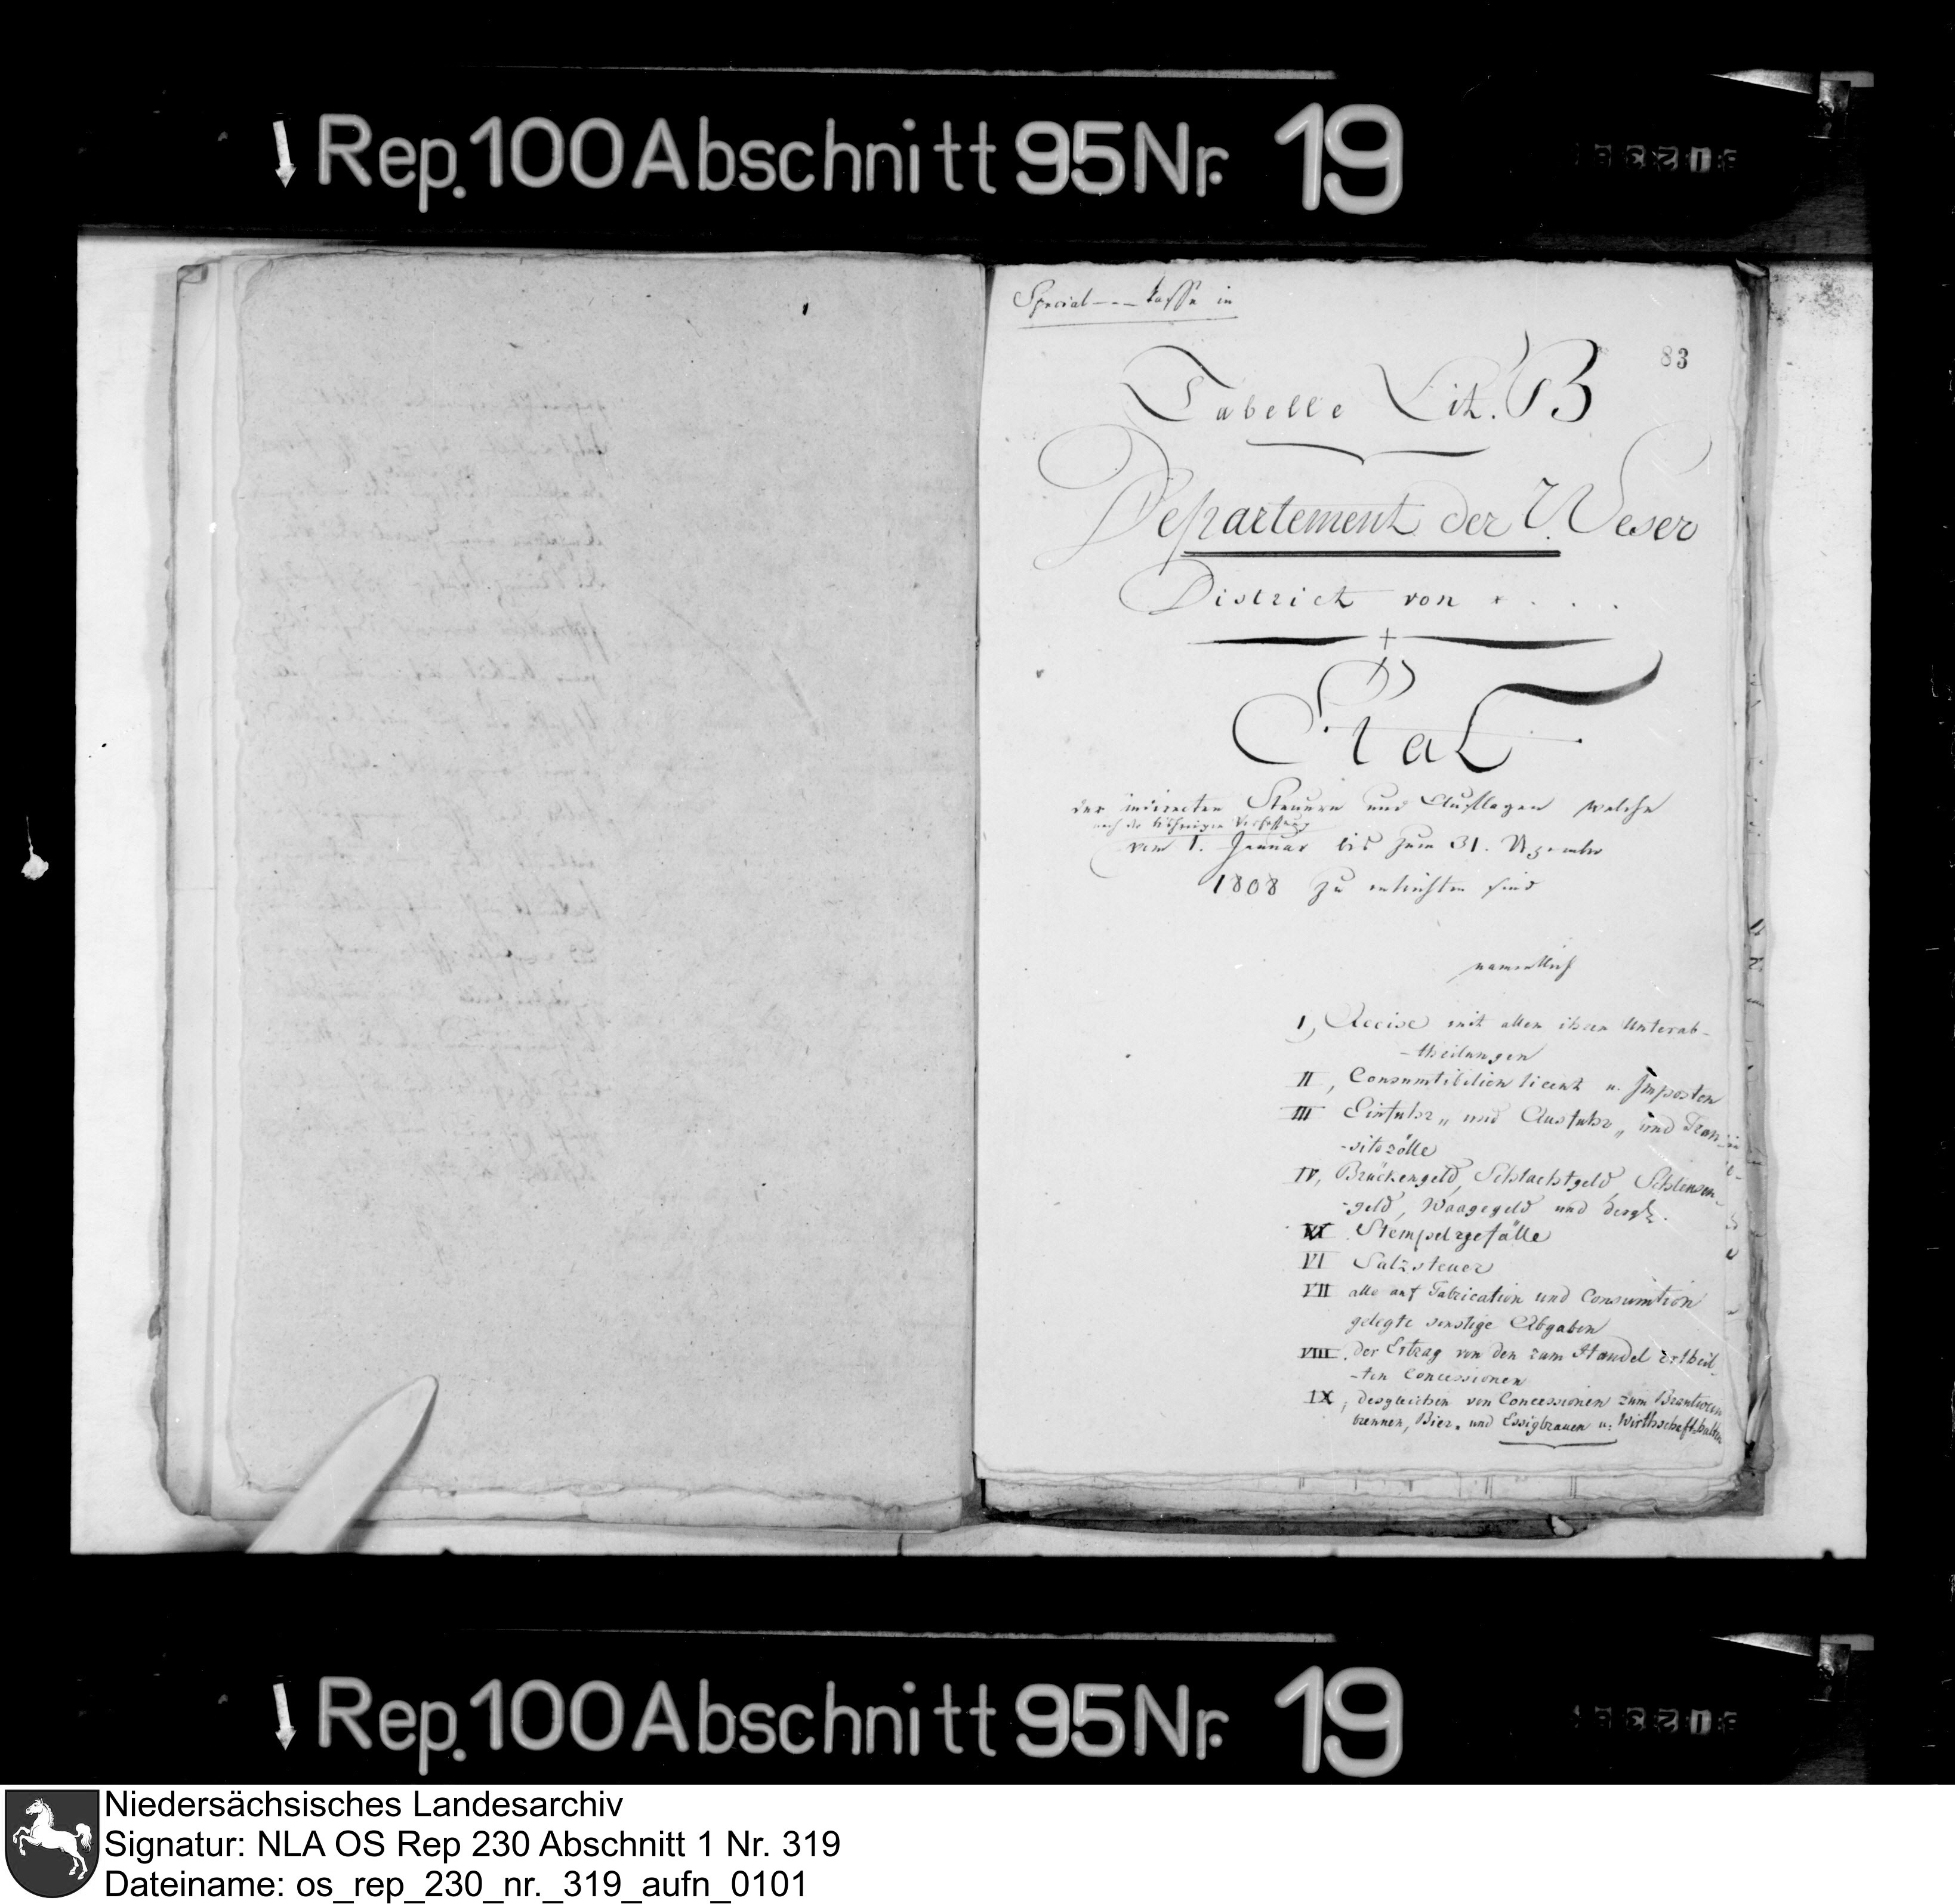 Rep. 100 Abschnitt 95 Nr. 19
Special - - - Casse in
83
Tabelle Lit. B
Departement der Weser
District von . . . .
Etat
der indirecten Steuern und Auflagen welche
nach der bisherigen Verfassung
vom 1. Januar bis zum 31. Dezember
1808 zu entrichten sind
namentlich
I, Accise mit allen ihren Unterab-
-theilungen
II, Consumtibilien licent u. Imposten
III Einfuhr„ und Ausfuhr„ und Tran-
-sitozölle
IV, Brückengeld, Schlachtgeld Schleusen-
-geld, Waagegeld und dergl.
V Stempelgefälle
VI Salzsteuer
VII alle auf Fabrication und Consumtion
gelegte sonstige Abgaben
VIII. der Ertrag von den zum Handel ertheil-
-ten Concessionen
IX, desgleichen von Concessionen zum Brantwein
brennen, Bier- und Essigbrauen u. Wirthschafthalten
Rep. 100 Abschnitt 95 Nr. 19
Niedersächsisches Landesarchiv
Signatur: NLA OS Rep 230 Abschnitt 1 Nr. 319
Dateiname: os_rep_230_nr._319_aufn_0101